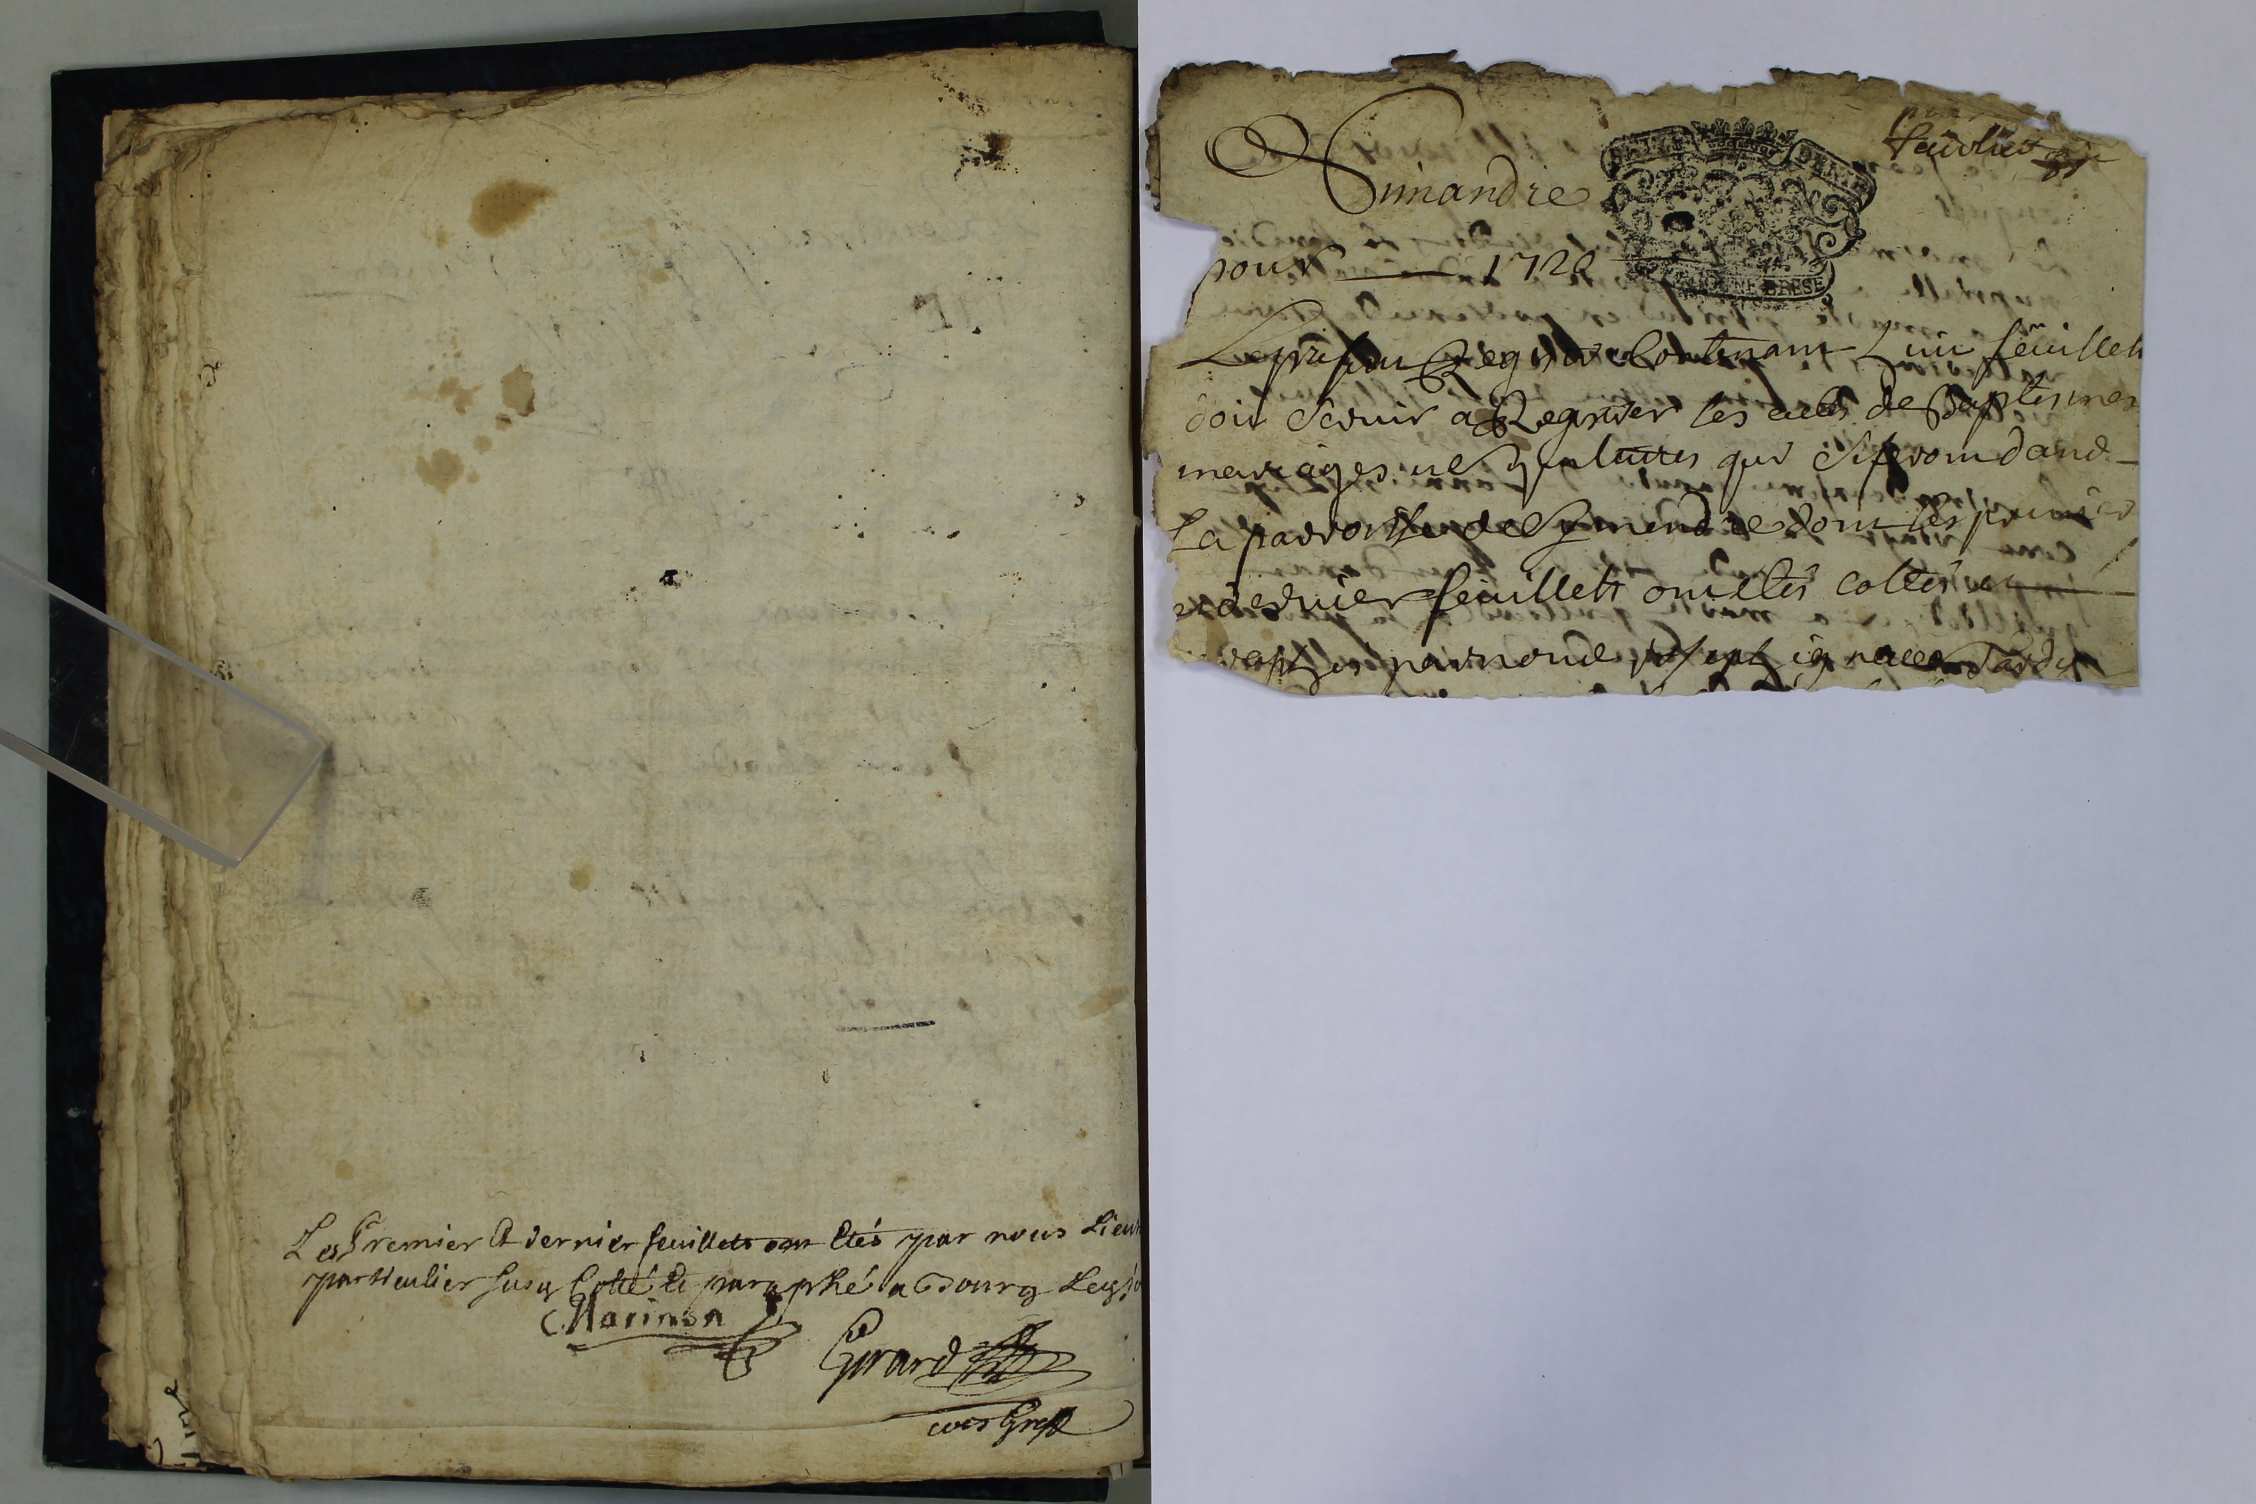 Les Premier Et dernier feuillets ont Etés par nous Lieut
particulier susd Cotté Et paraphé a Bourg Les
Marinon
Girard
coēs Greff
feuillet
Simandre
pour 1720
BRESSE
Le present Registre Contenant huit feuillets
doit servir a Registrer les actes de Baptesmes
mariages et sepultures qui se feront dans
La parroisse de Simandre dont les premier
et dernier feuillets ont etés cottés et
paraphes par nous Joseph ignace Tardy